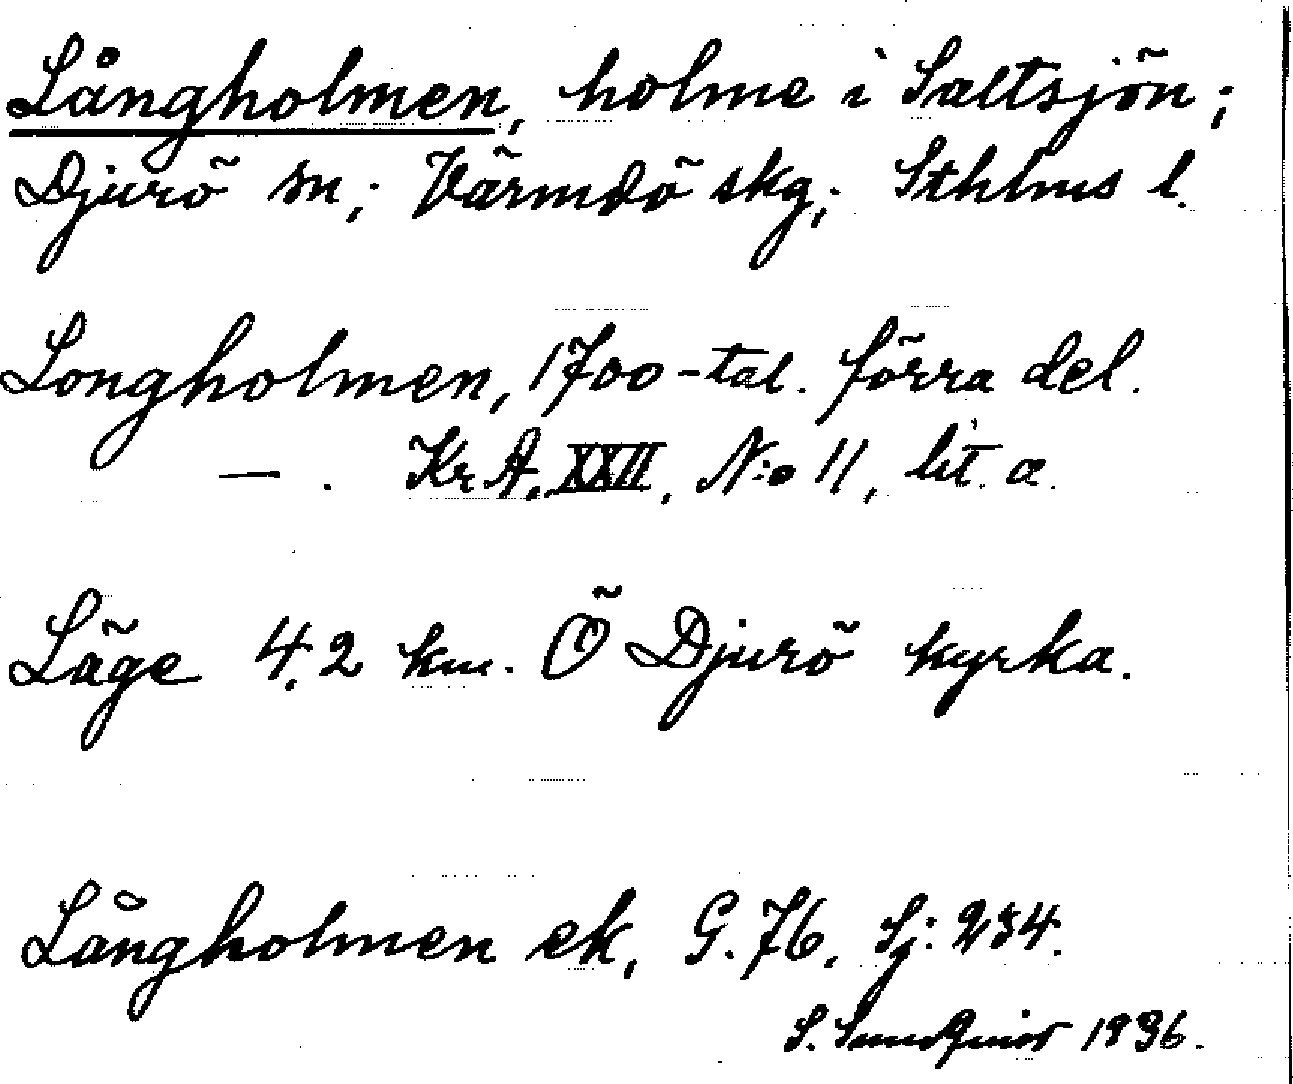 Långholmen, holme i Saltsjön;
Djurö sn; Värmdö skg; Sthlms l.
Longholmen, 1700-tal. förra del.
— . Kr. A. XXII, N:o 11, lit. a.
Läge 4.2 km. Ö Djurö kyrka.
Långholmen ek, G. 76, Sj: 234.
S. Sundqvist 1936.